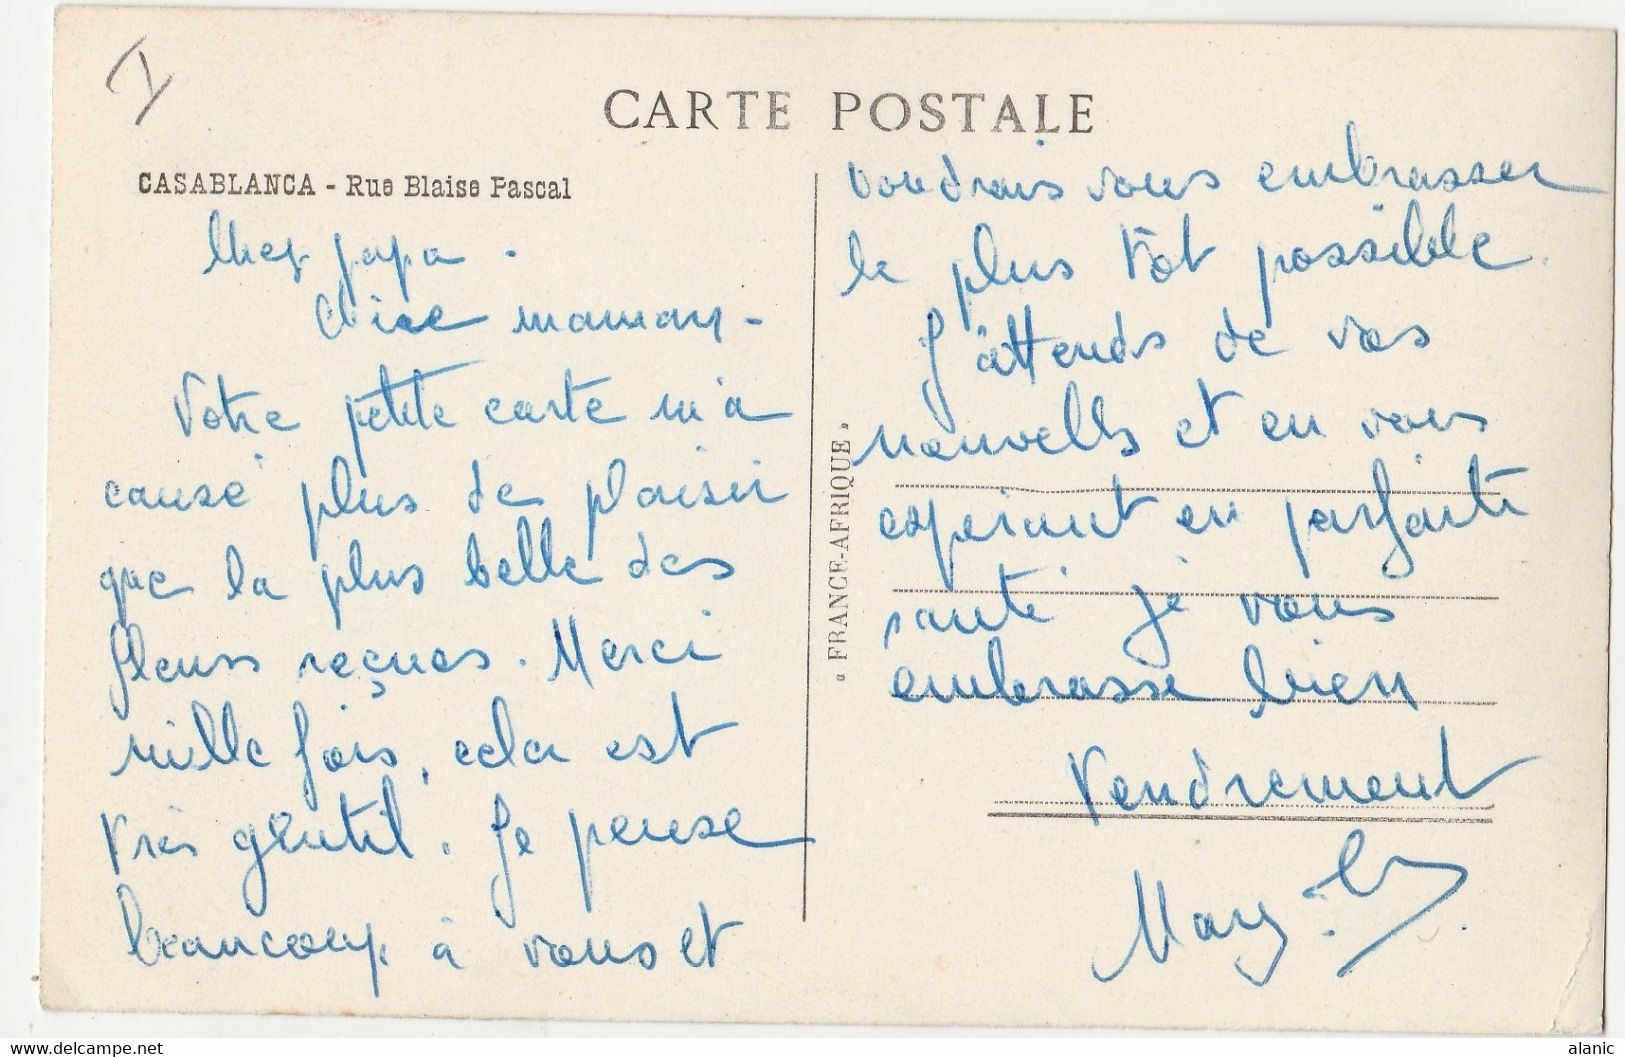 CARTE POSTALE
CASABLANCA - Rue Blaise Pascal
Cher papa.
Chère maman -
Votre petite carte m'a
causé plus de plaisir
que la plus belle des
fleurs reçues. Merci
mille fois, cela est
très gentil. Je pense
beaucoup à vous et
« FRANCE-AFRIQUE »
voudrais vous embrasser
le plus tôt possible.
J'attends de vos
nouvelles et en vous
espérant en parfaite
santé je vous
embrasse bien
tendrement
delcampe.net
alanic